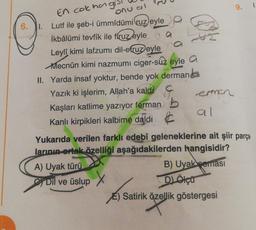 En çok hangisi
onu al
9.
6.
I. Lutf ile şeb-i ümmîdüm'rûz eyle a
İkbâlümi tevfîk ile fîruz eyle a
Leylî kimi lafzumı dil-efrûz eyle a
Mecnûn kimi nazmumı ciger-sûz eyle a
II. Yarda insaf yoktur, bende yok derman b
Yazık ki işlerim, Allah'a kaldı ç
Kaşları katlime yazıyor ferman b
Kanlı kirpikleri kalbime daldı ç
erman
al
Yukarıda verilen farklı edebî geleneklerine ait şiir parça
larının ortak özelliği aşağıdakilerden hangisidir?
A) Uyak türü
B) Uyak şeması
C) Dil ve üslup
D) Ölçü
E) Satirik özellik göstergesi